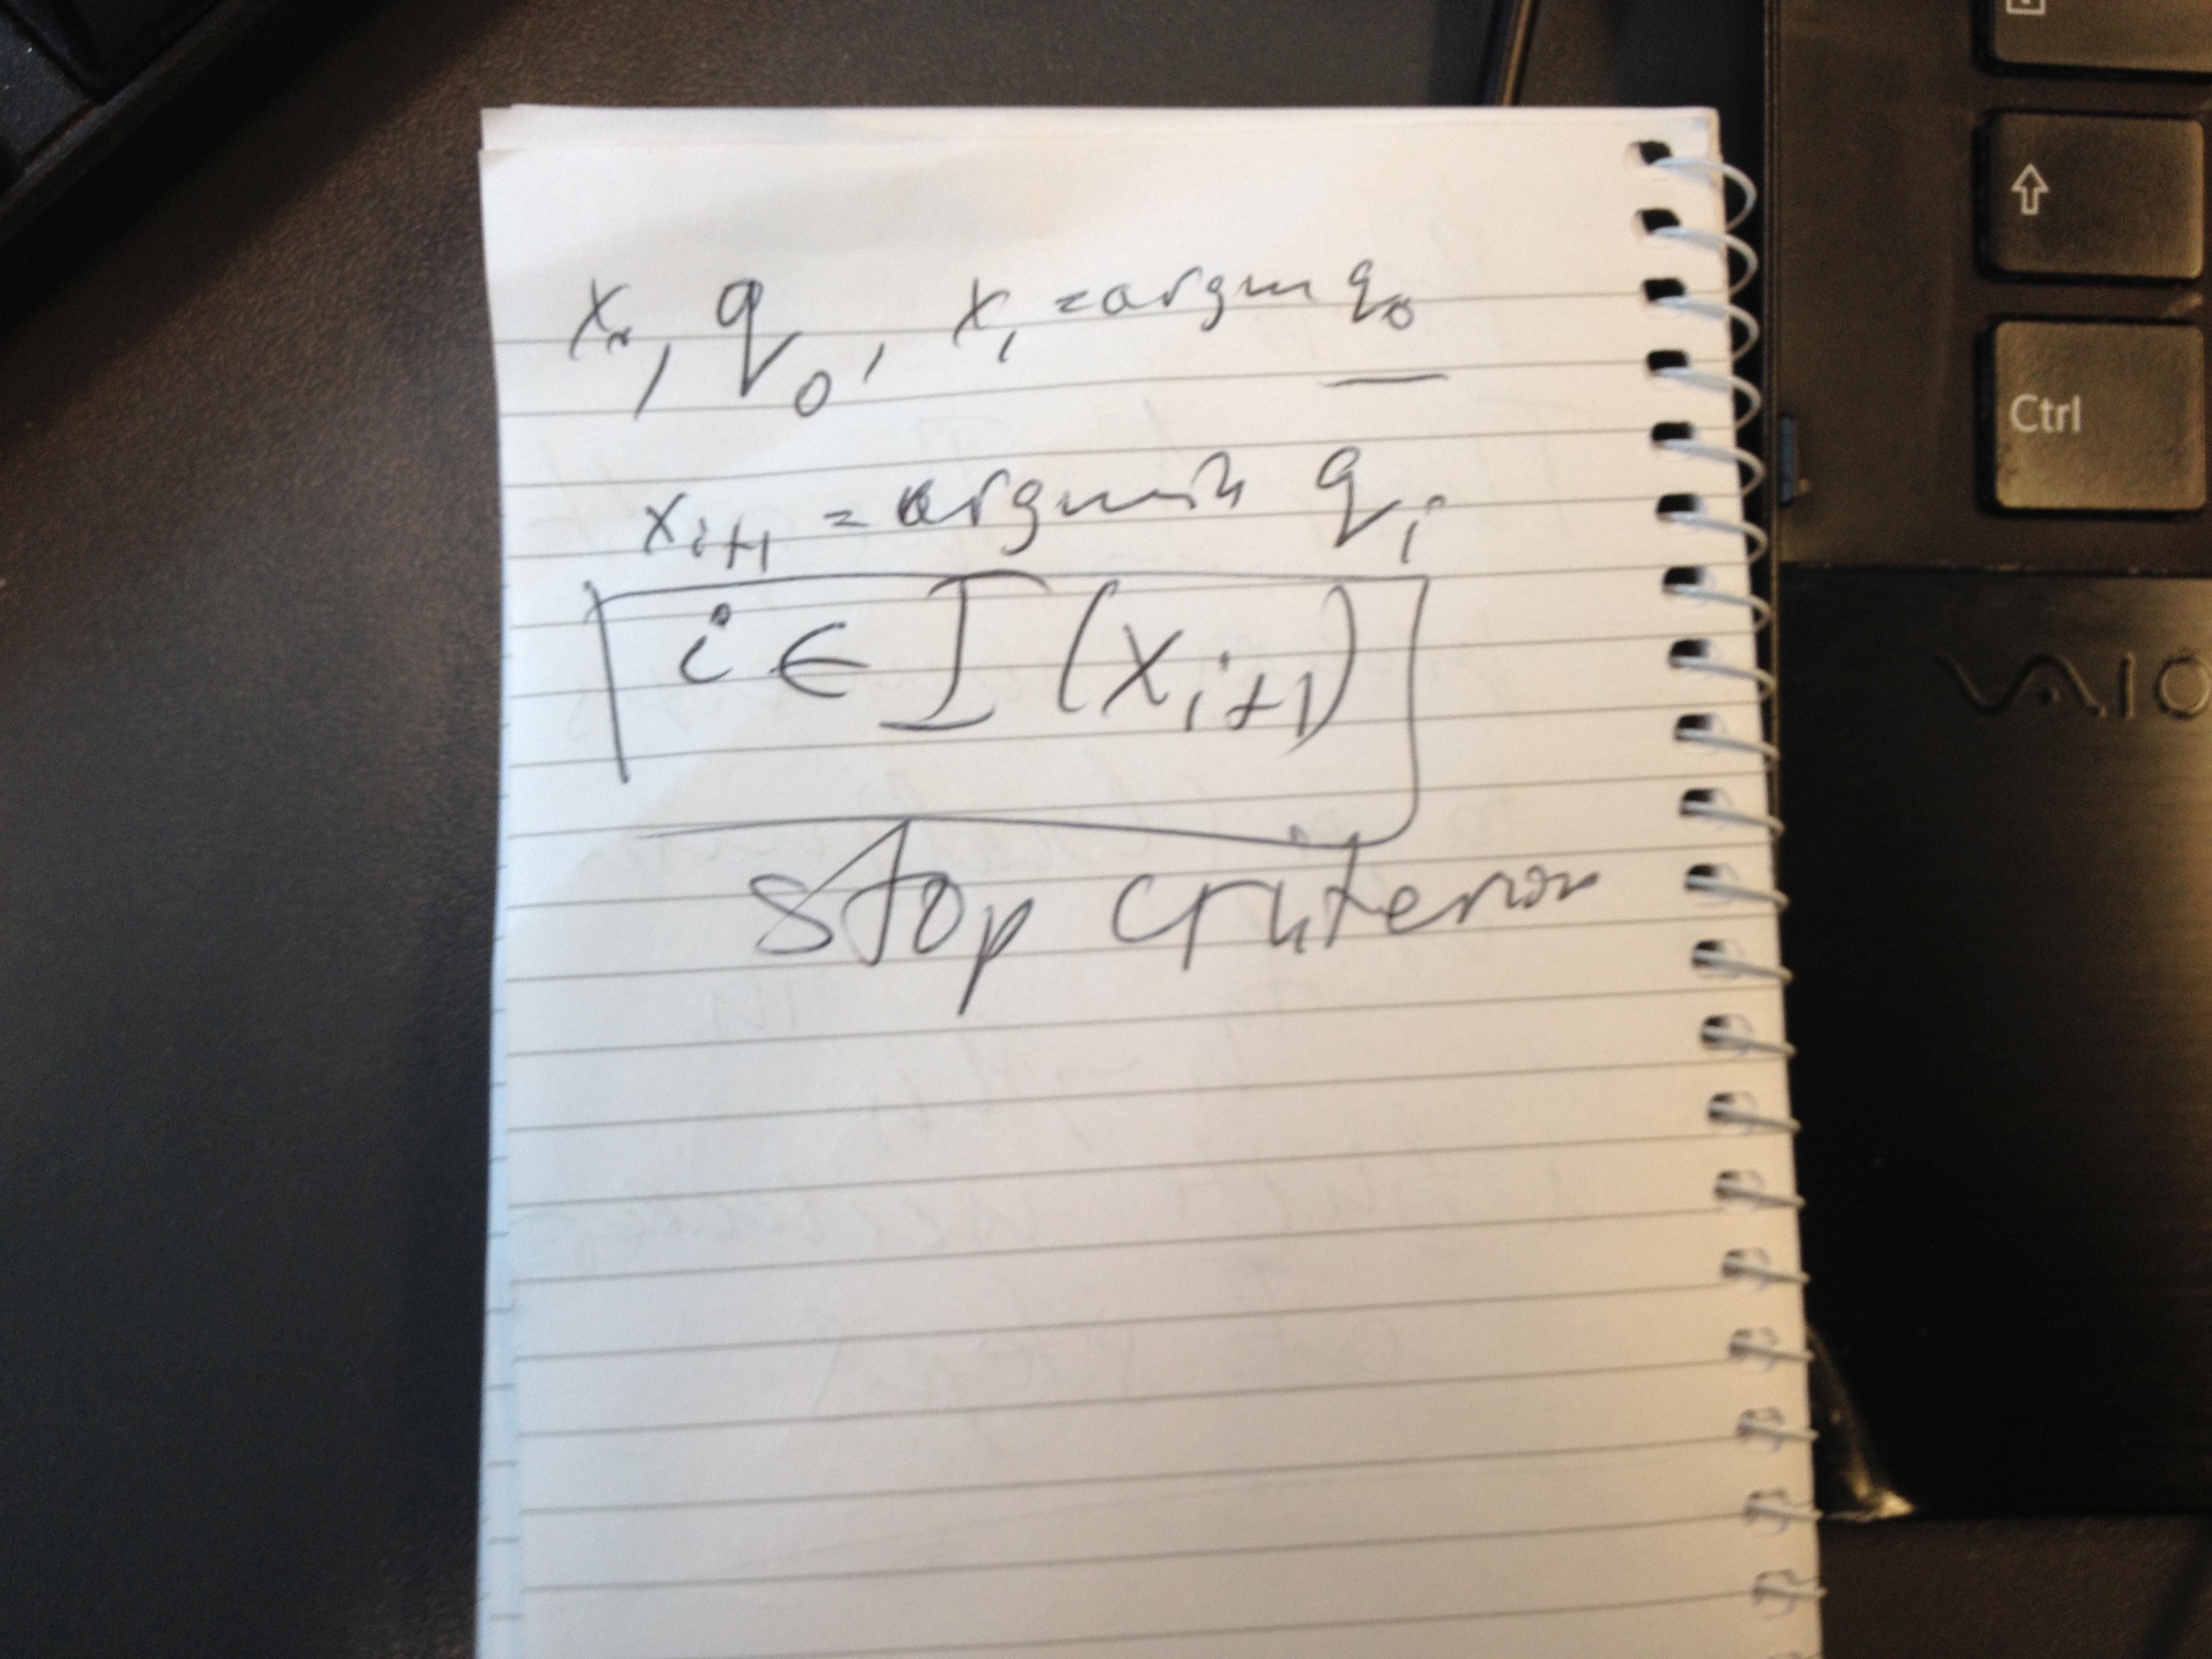 x₀, q₀, x₁ = argmin q₀
xᵢ₊₁ = argmin qᵢ
i ∈ I (xᵢ₊₁)
stop criterion
⇧
Ctrl
VAIO